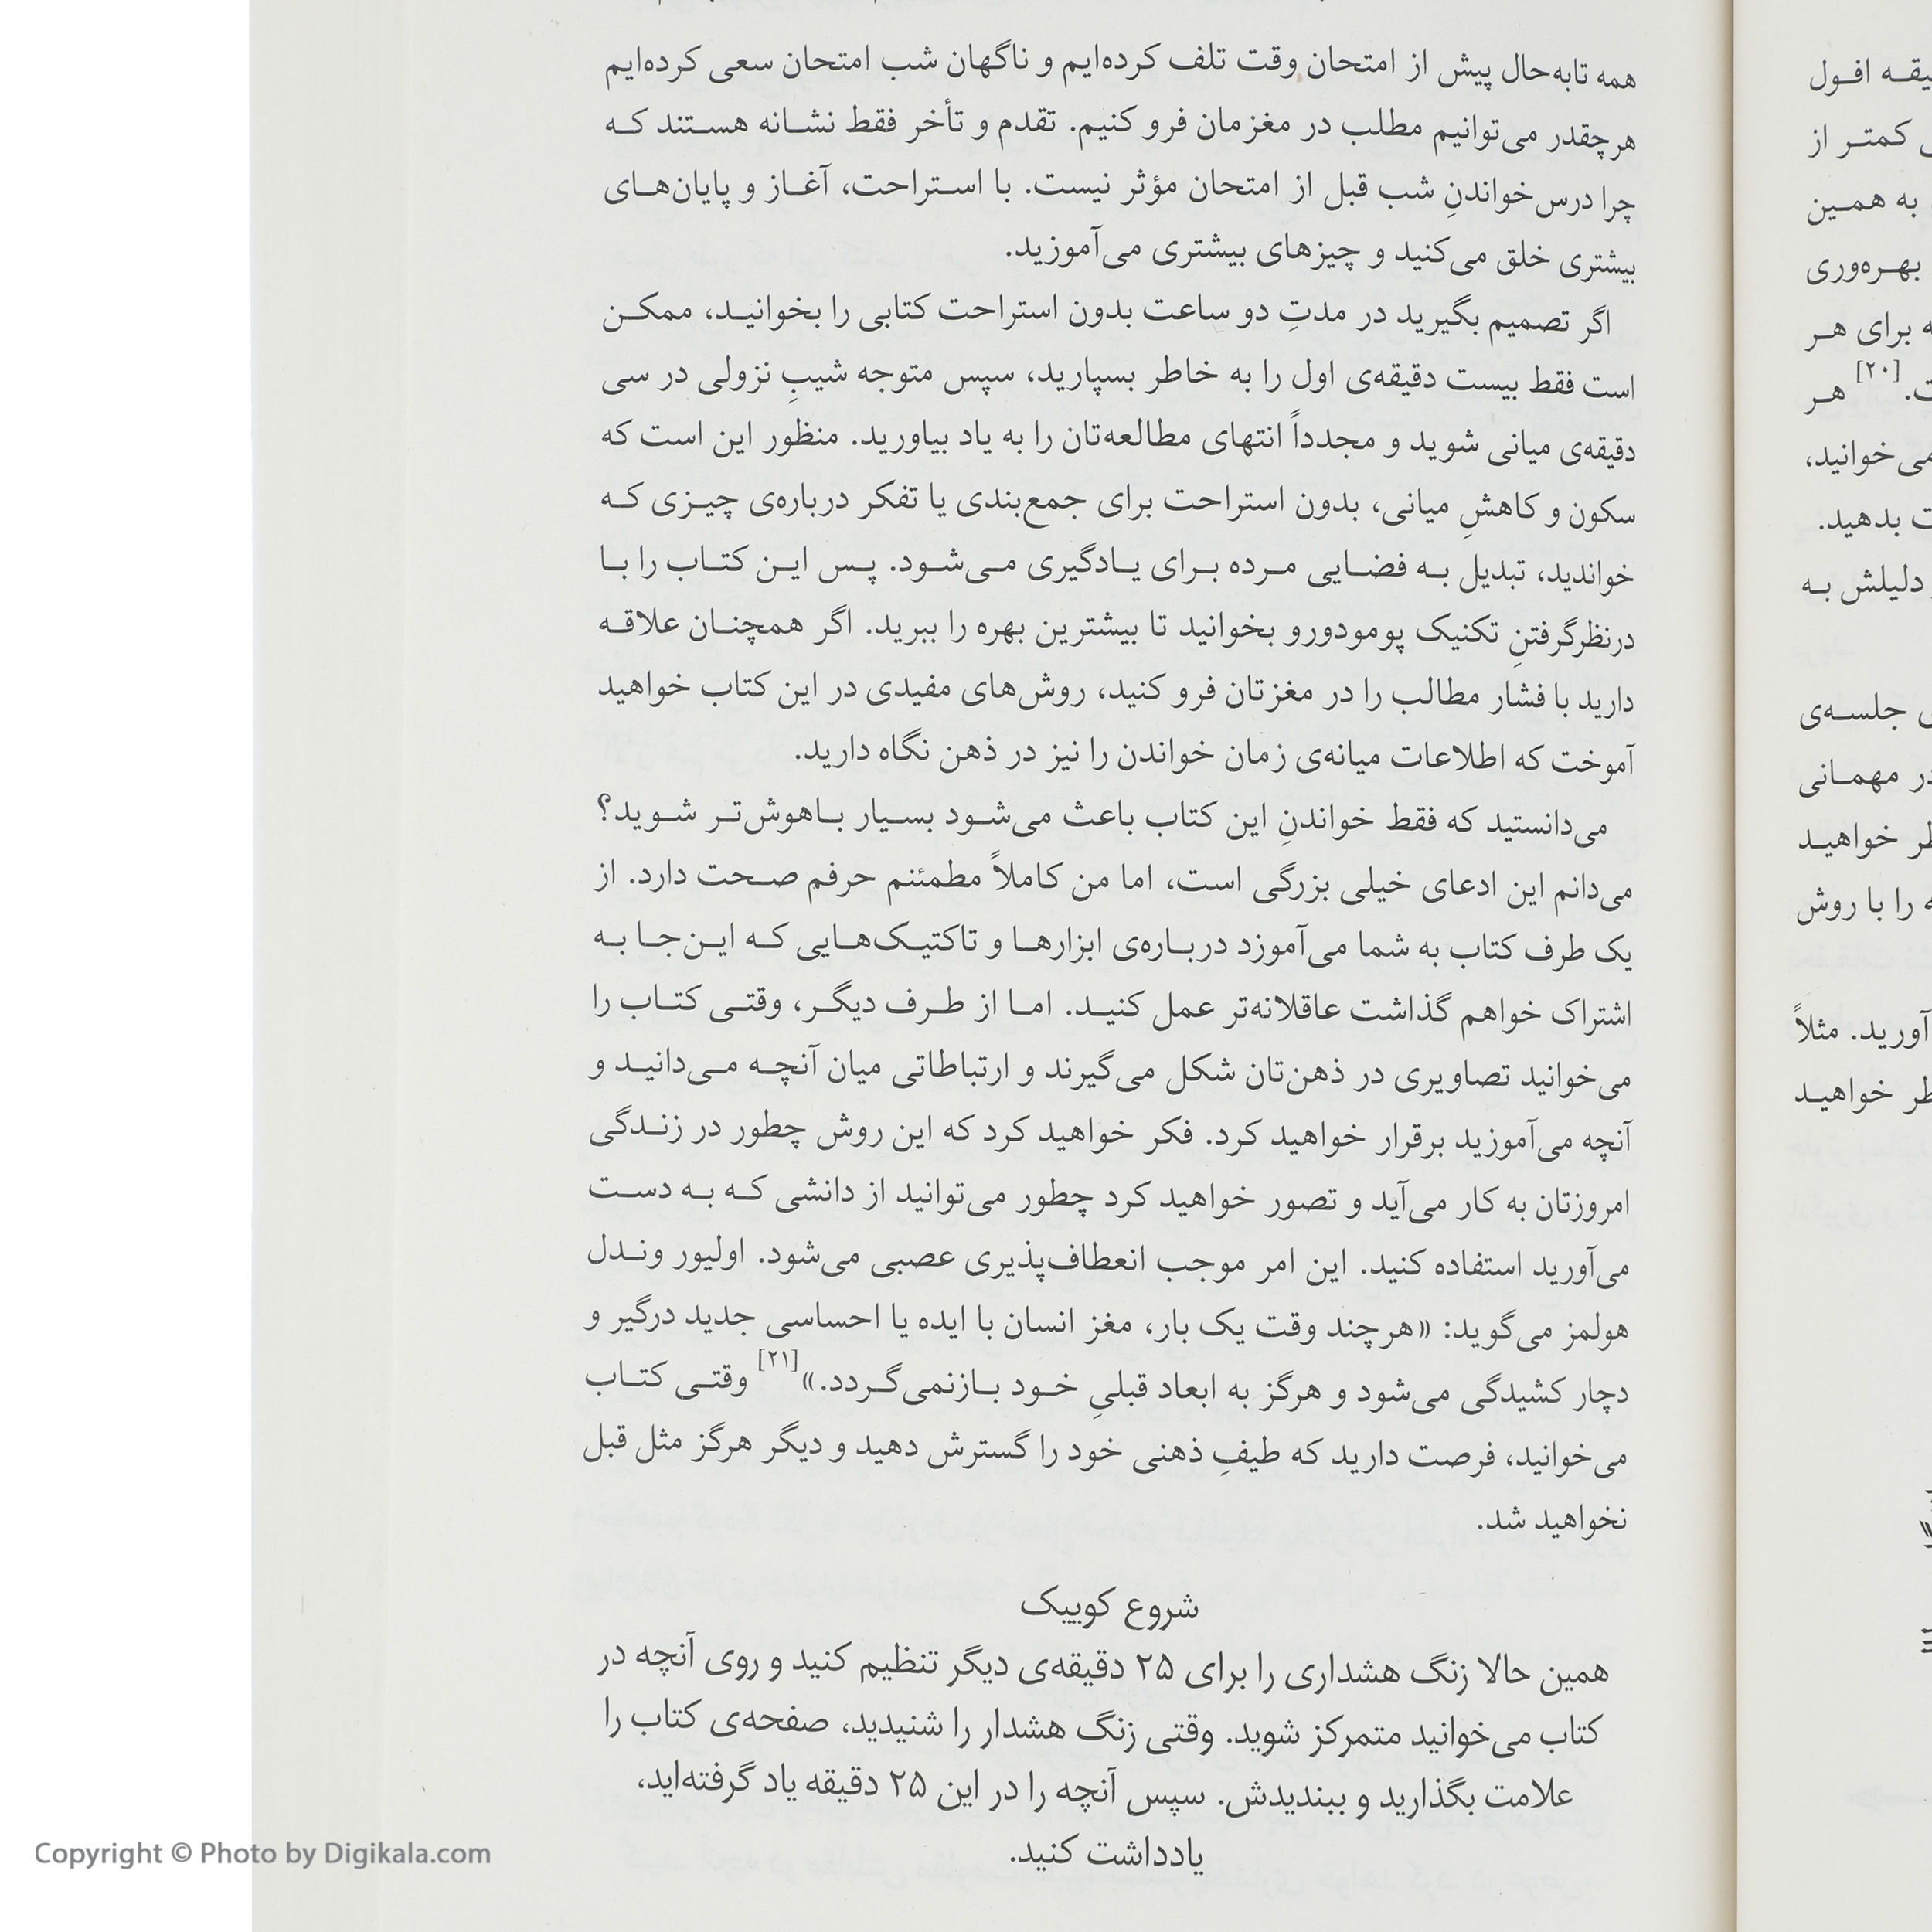 همه تابه‌حال پیش از امتحان وقت تلف کرده‌ایم و ناگهان شب امتحان سعی کرده‌ایم
هرچقدر می‌توانیم مطلب در مغزمان فرو کنیم. تقدم و تأخر فقط نشانه هستند که
چرا درس‌خواندنِ شب قبل از امتحان مؤثر نیست. با استراحت، آغاز و پایان‌های
بیشتری خلق می‌کنید و چیزهای بیشتری می‌آموزید.
اگر تصمیم بگیرید در مدتِ دو ساعت بدون استراحت کتابی را بخوانید، ممکن
است فقط بیست دقیقه‌ی اول را به خاطر بسپارید، سپس متوجه شیبِ نزولی در سی
دقیقه‌ی میانی شوید و مجدداً انتهای مطالعه‌تان را به یاد بیاورید. منظور این است که
سکون و کاهشِ میانی، بدون استراحت برای جمع‌بندی یا تفکر درباره‌ی چیزی که
خواندید، تبدیل به فضایی مرده برای یادگیری می‌شود. پس این کتاب را با
درنظرگرفتنِ تکنیک پومودورو بخوانید تا بیشترین بهره را ببرید. اگر همچنان علاقه
دارید با فشار مطالب را در مغزتان فرو کنید، روش‌های مفیدی در این کتاب خواهید
آموخت که اطلاعات میانه‌ی زمان خواندن را نیز در ذهن نگاه دارید.
می‌دانستید که فقط خواندنِ این کتاب باعث می‌شود بسیار باهوش‌تر شوید؟
می‌دانم این ادعای خیلی بزرگی است، اما من کاملاً مطمئنم حرفم صحت دارد. از
یک طرف کتاب به شما می‌آموزد درباره‌ی ابزارها و تاکتیک‌هایی که این‌جا به
اشتراک خواهم گذاشت عاقلانه‌تر عمل کنید. اما از طرف دیگر، وقتی کتاب را
می‌خوانید تصاویری در ذهن‌تان شکل می‌گیرند و ارتباطاتی میان آنچه می‌دانید و
آنچه می‌آموزید برقرار خواهید کرد. فکر خواهید کرد که این روش چطور در زندگی
امروزتان به کار می‌آید و تصور خواهید کرد چطور می‌توانید از دانشی که به دست
می‌آورید استفاده کنید. این امر موجب انعطاف‌پذیری عصبی می‌شود. اولیور وندل
هولمز می‌گوید: «هرچند وقت یک بار، مغز انسان با ایده یا احساسی جدید درگیر و
دچار کشیدگی می‌شود و هرگز به ابعاد قبلیِ خود بازنمی‌گردد.»[۲۱] وقتی کتاب
می‌خوانید، فرصت دارید که طیفِ ذهنی خود را گسترش دهید و دیگر هرگز مثل قبل
نخواهید شد.
شروع کوییک
همین حالا زنگ هشداری را برای ۲۵ دقیقه‌ی دیگر تنظیم کنید و روی آنچه در
کتاب می‌خوانید متمرکز شوید. وقتی زنگ هشدار را شنیدید، صفحه‌ی کتاب را
علامت بگذارید و ببندیدش. سپس آنچه را در این ۲۵ دقیقه یاد گرفته‌اید،
یادداشت کنید.
افول
کمتر از
به همین
بهره‌وری
برای هر
[۲۰] هر
می‌خوانید،
بدهید.
دلیلش به
جلسه‌ی
مهمانی
خواهید
را با روش
آورید. مثلاً
خواهید
Copyright © Photo by Digikala.com